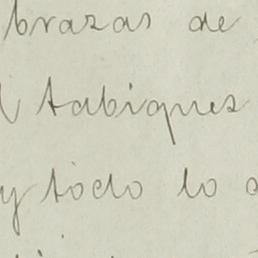 brazas de
tabiques
y todo lo